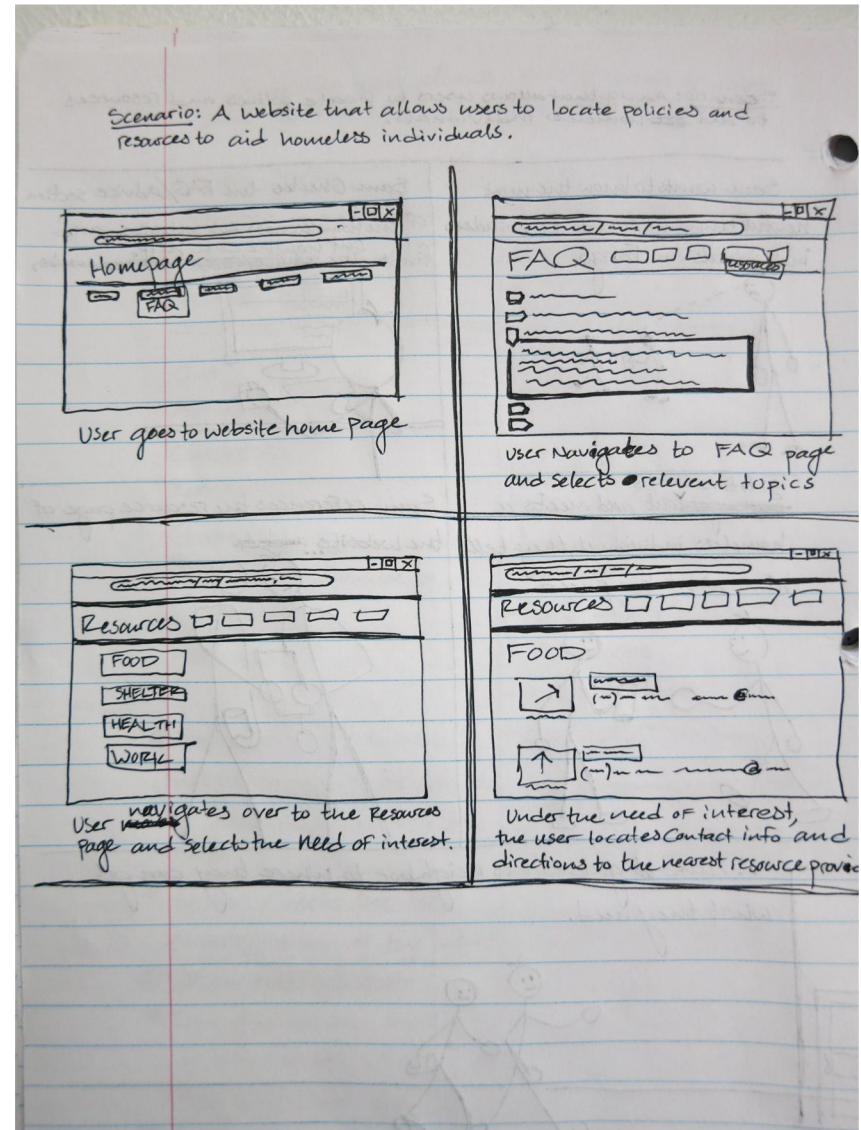 Scenario: A website that allows users to locate policies and
resources to aid homeless individuals.
Homepage
FAQ
User goes to website home page
FAQ
resources
User Navigates to FAQ page
and selects relevent topics
Resources
FOOD
SHELTER
HEALTH
WORK
User navigates over to the Resources
page and selects the need of interest.
Resources
FOOD
Under the need of interest,
the user locates contact info and
directions to the nearest resource provid